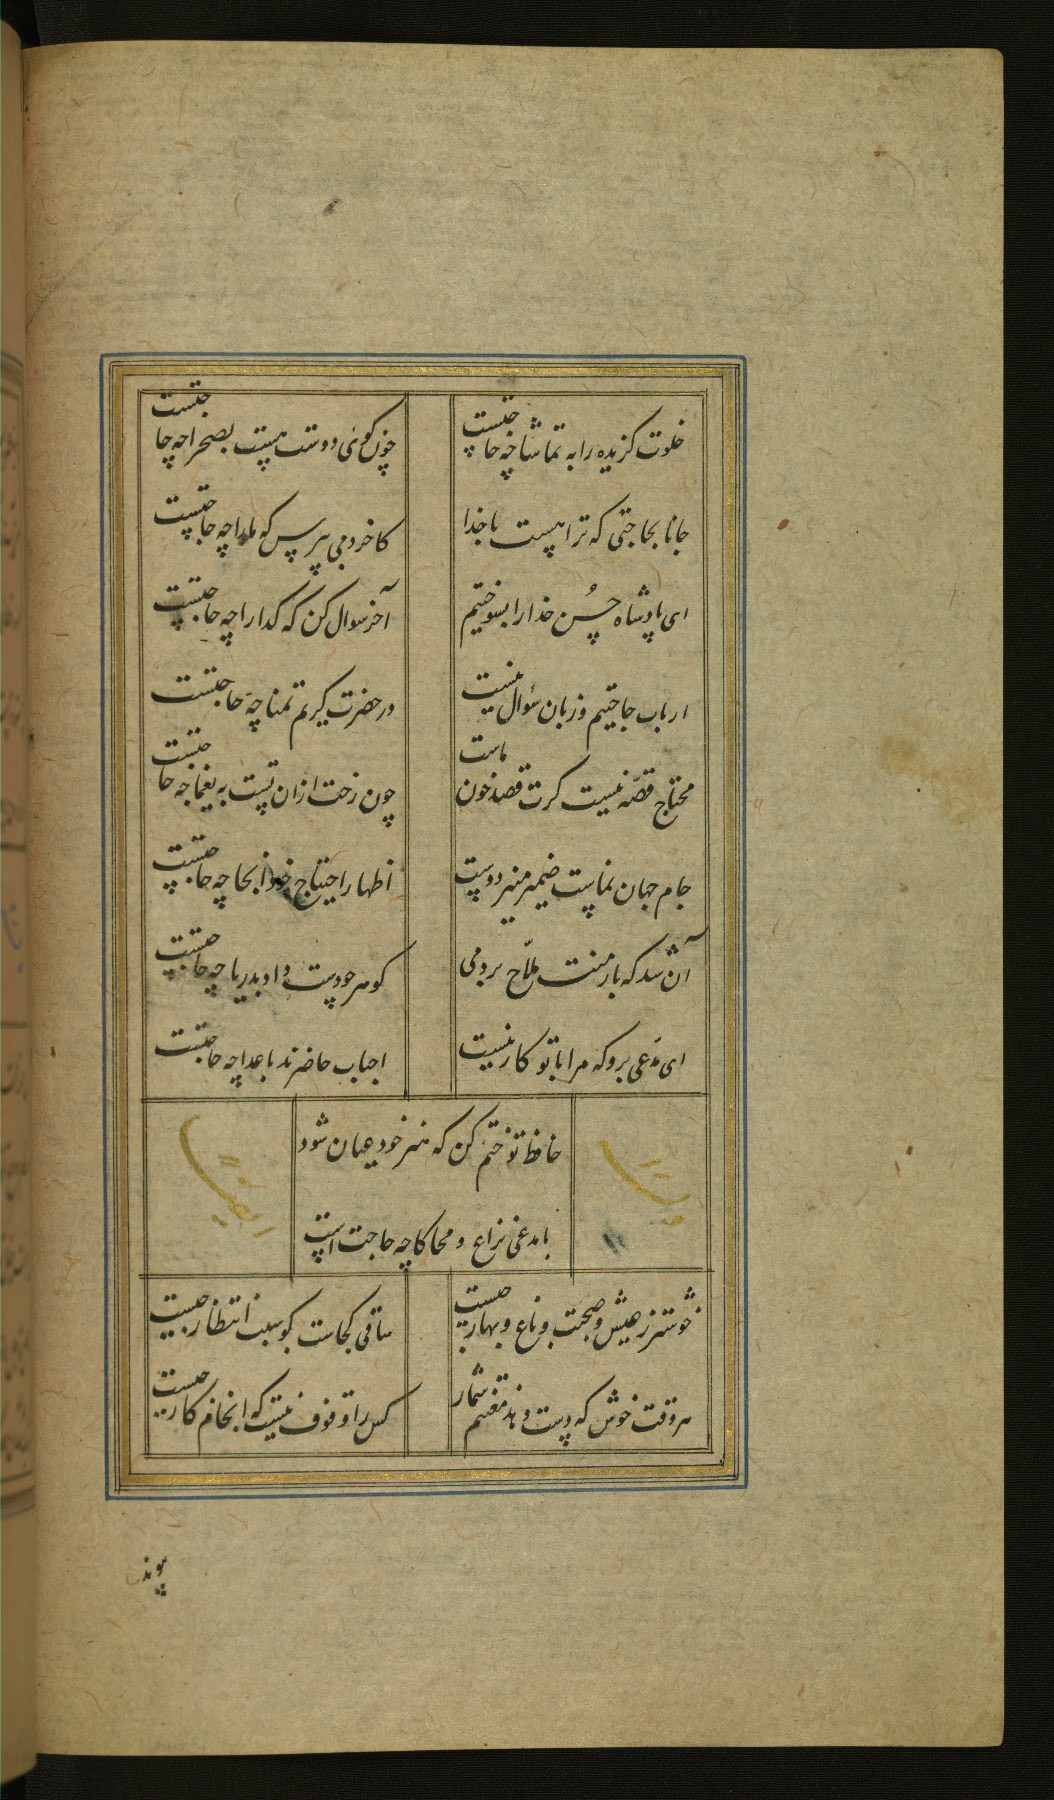 خلوت کزیده را به تماشا چه حاجتست
چون کوی دوست هست بصحرا چه حاجتست
جانا بحاجتی که ترا هست با خدا
کاخر دمی بپرس که ما را چه حاجتست
ای پادشاه حسن خدا را بسوختیم
آخر سوال کن که کدا را چه حاجتست
ارباب حاجتیم و زبان سؤال نیست
در حضرت کریم تمنا چه حاجتست
محتاج قصّه نیست کرت قصد خون ماست
چون رخت ازان تست به یغما چه حاجتست
جام جهان نماست ضمیر منیر دوست
اظهار احتیاج خود انجا چه حاجتست
آن شد که بار منت ملّاح بردمی
کوهر چو دست داد بدریا چه حاجتست
ای مدعی برو که مرا با تو کار نیست
احباب حاضرند باعدا چه حاجتست
حافظ تو ختم کن که هنر خود عیان شود
با مدعی نزاع و محاکا چه حاجت است
وله ایضا
خوشتر ز عیش و صحبت و باغ و بهار چیست
ساقی کجاست کو سبب انتظار چیست
هر وقت خوش که دست دهد مغتنم شمار
کس را وقوف نیست که انجام کار چیست
پیوند